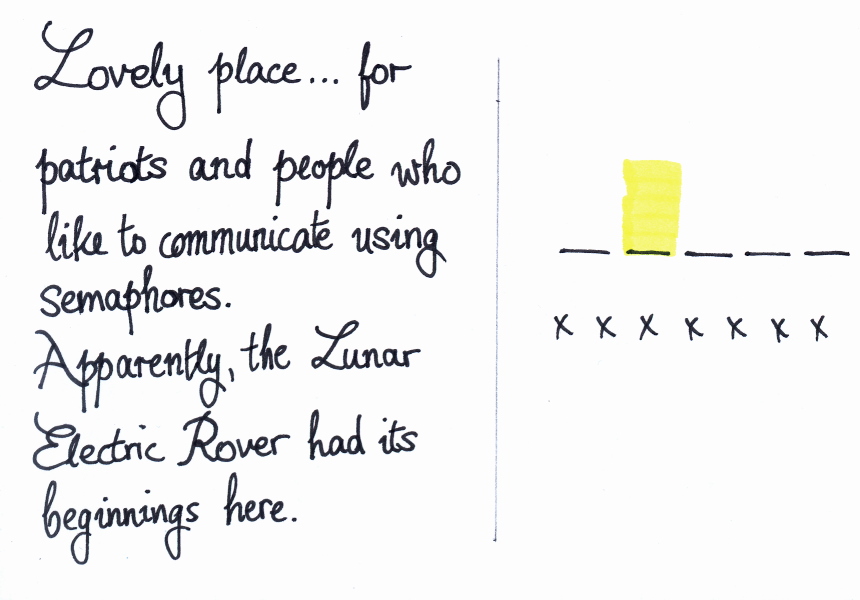 Lovely place... for
patriots and people who
like to communicate using
semaphores.
Apparently, the Lunar
Electric Rover had its
beginnings here.
_ _ _ _ _
x x x x x x x